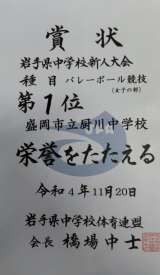 賞状
岩手県中学校新人大会
種目 バレーボール競技
(女子の部)
第1位
盛岡市立厨川中学校
栄誉をたたえる
令和4年11月20日
岩手県中学校体育連盟
会長 橋場中士